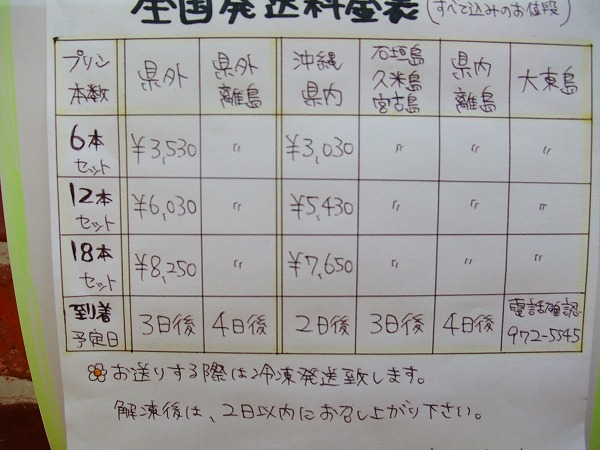 全国発送料金表(すべて込みのお値段)
プリン本数 県外 県外離島 沖縄県内 石垣島久米島宮古島 県内離島 大東島
6本セット ¥3,530 〃 ¥3,030 〃 〃 〃
12本セット ¥6,030 〃 ¥5,430 〃 〃 〃
18本セット ¥8,250 〃 ¥7,650 〃 〃 〃
到着予定日 3日後 4日後 2日後 3日後 4日後 電話確認972-5545
お送りする際は冷凍発送致します。
解凍後は、2日以内にお召し上がり下さい。